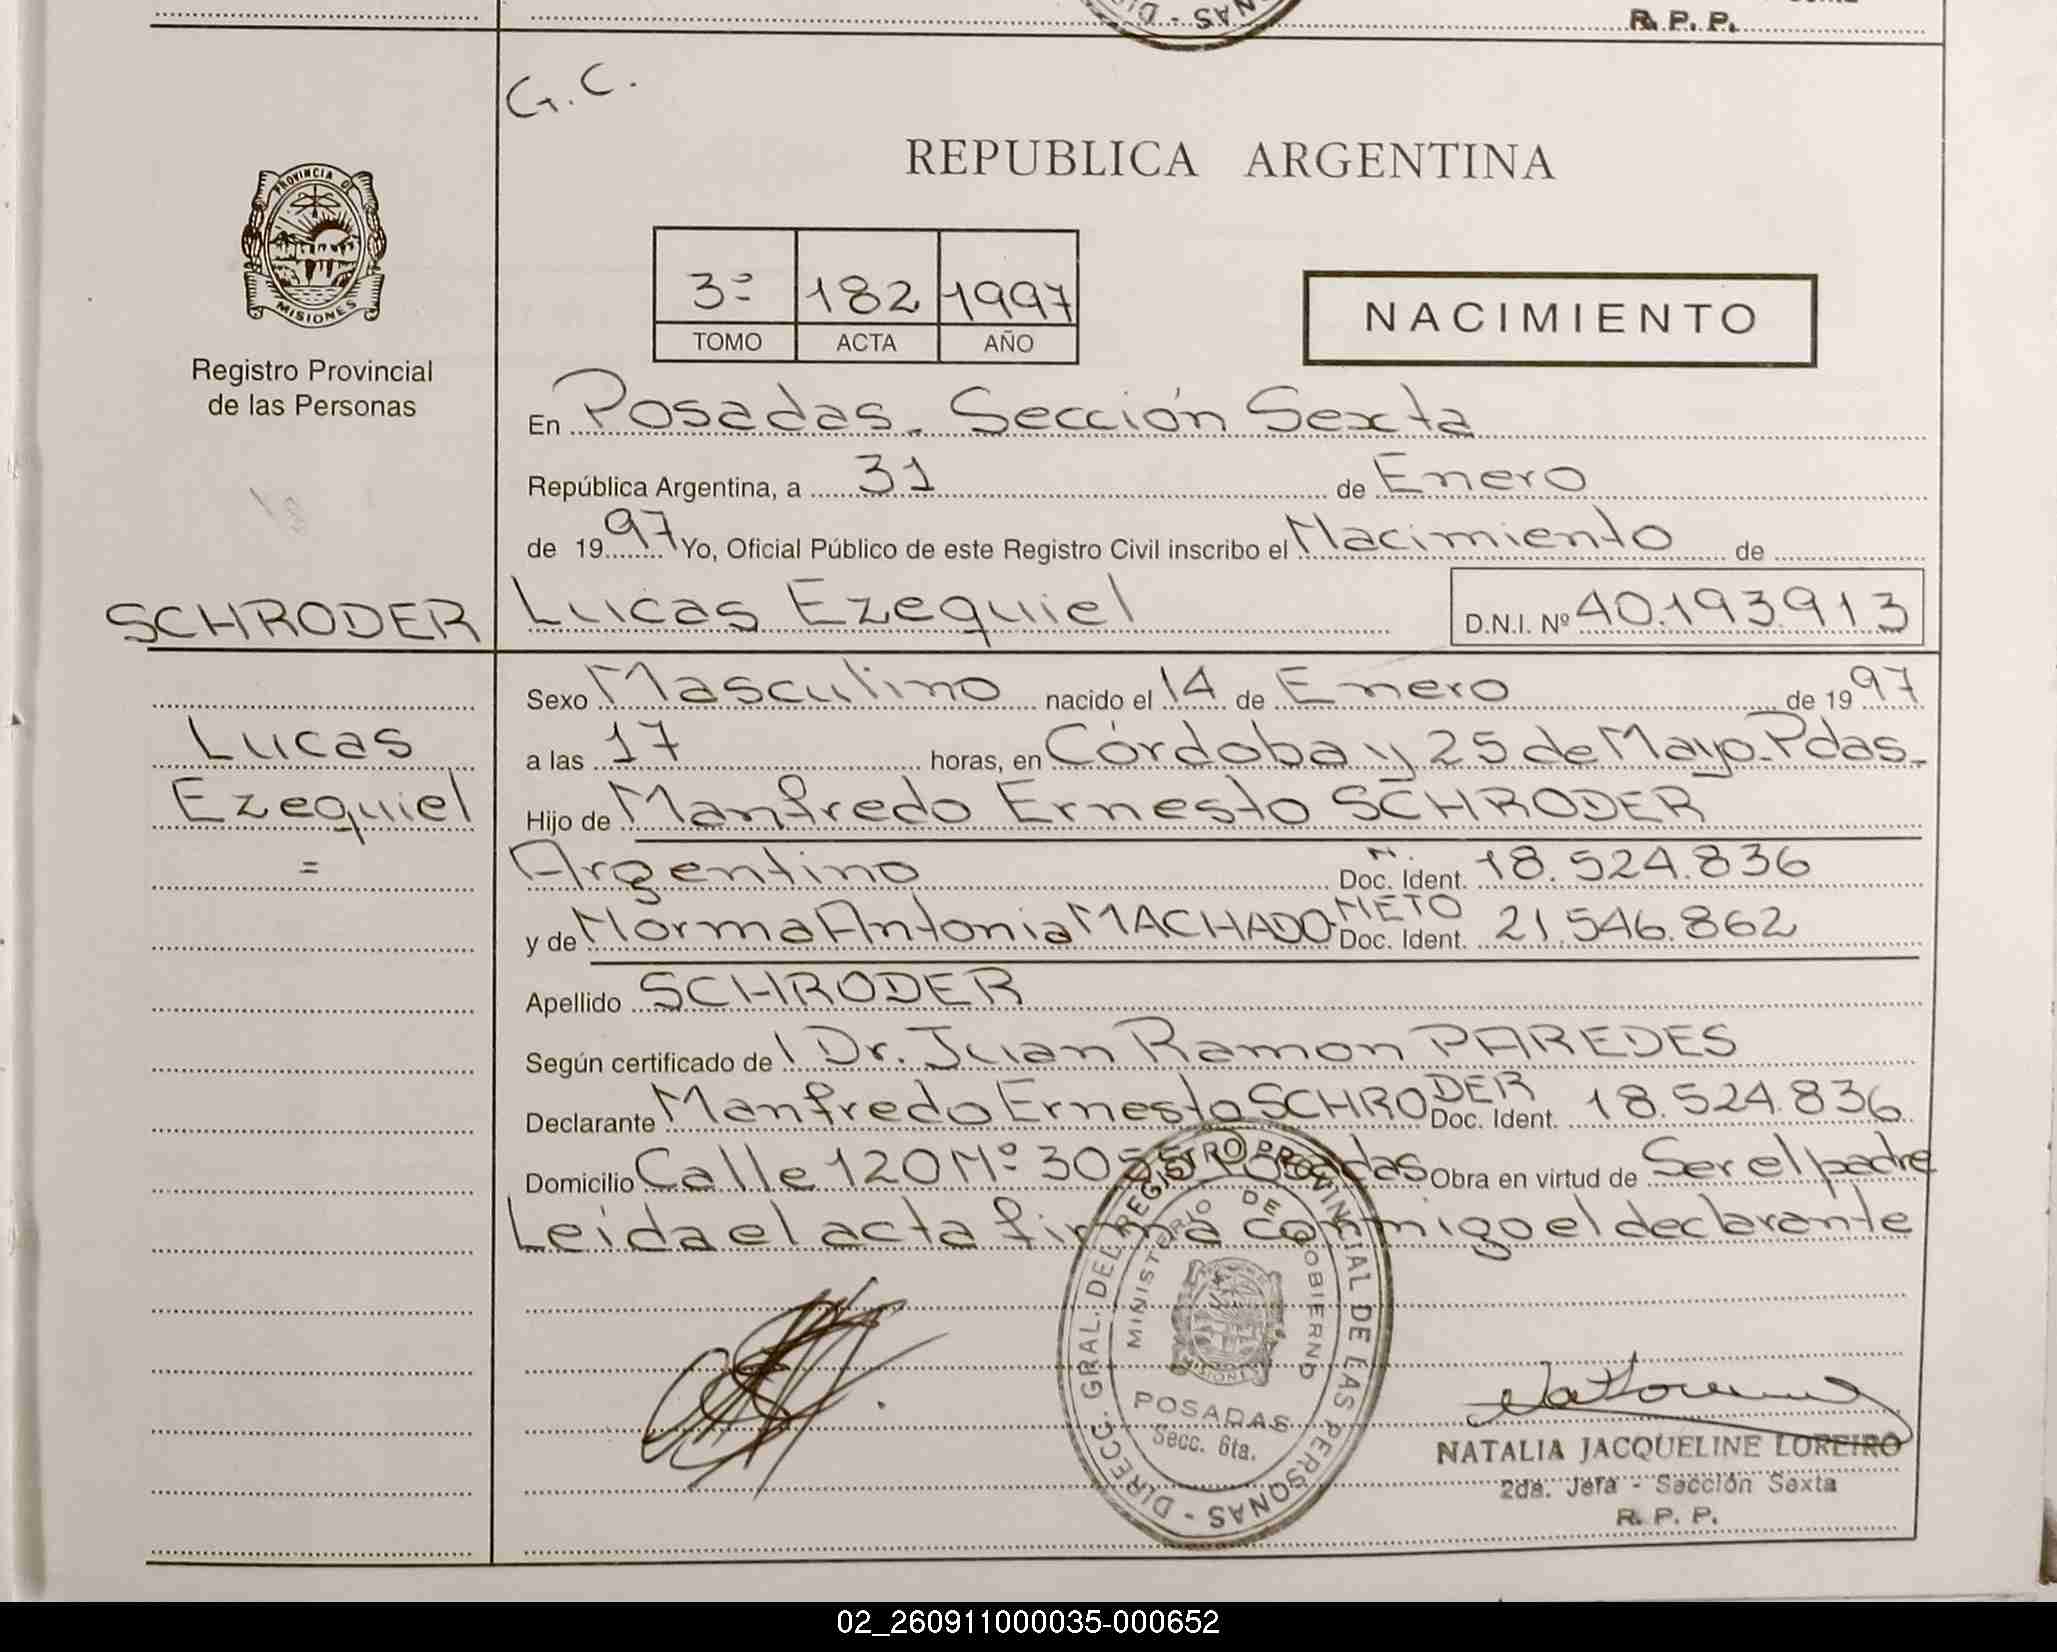 R. P. P.
G. C.
REPUBLICA ARGENTINA
PROVINCIA DE
MISIONES
Registro Provincial
de las Personas
3º 182 1997
TOMO ACTA AÑO
NACIMIENTO
En Posadas. Sección Sexta
República Argentina, a 31 de Enero
de 1997 Yo, Oficial Público de este Registro Civil inscribo el Nacimiento de
SCHRODER Lucas Ezequiel D.N.I. Nº 40.193.913
Sexo Masculino nacido el 14 de Enero de 1997
Lucas
a las 17 horas, en Córdoba y 25 de Mayo. Pdas.
Ezequiel
Hijo de Manfredo Ernesto SCHRODER
= Argentino Doc. Ident. 18.524.836
y de Norma Antonia MACHADO NETO Doc. Ident. 21.546.862
Apellido SCHRODER
Según certificado de Dr. Juan Ramon PAREDES
Declarante Manfredo Ernesto SCHRODER Doc. Ident. 18.524.836
Domicilio Calle 120 Nº Posadas Obra en virtud de Ser el padre
Leida el acta firma conmigo el declarante
DIRECC. GRAL. DEL REGISTRO PROVINCIAL DE LAS PERSONAS -
MINISTERIO DE GOBIERNO
MISIONES
POSADAS
Secc. 6ta.
NATALIA JACQUELINE LOREIRO
2da. Jefa - Sección Sexta
R. P. P.
02_260911000035-000652